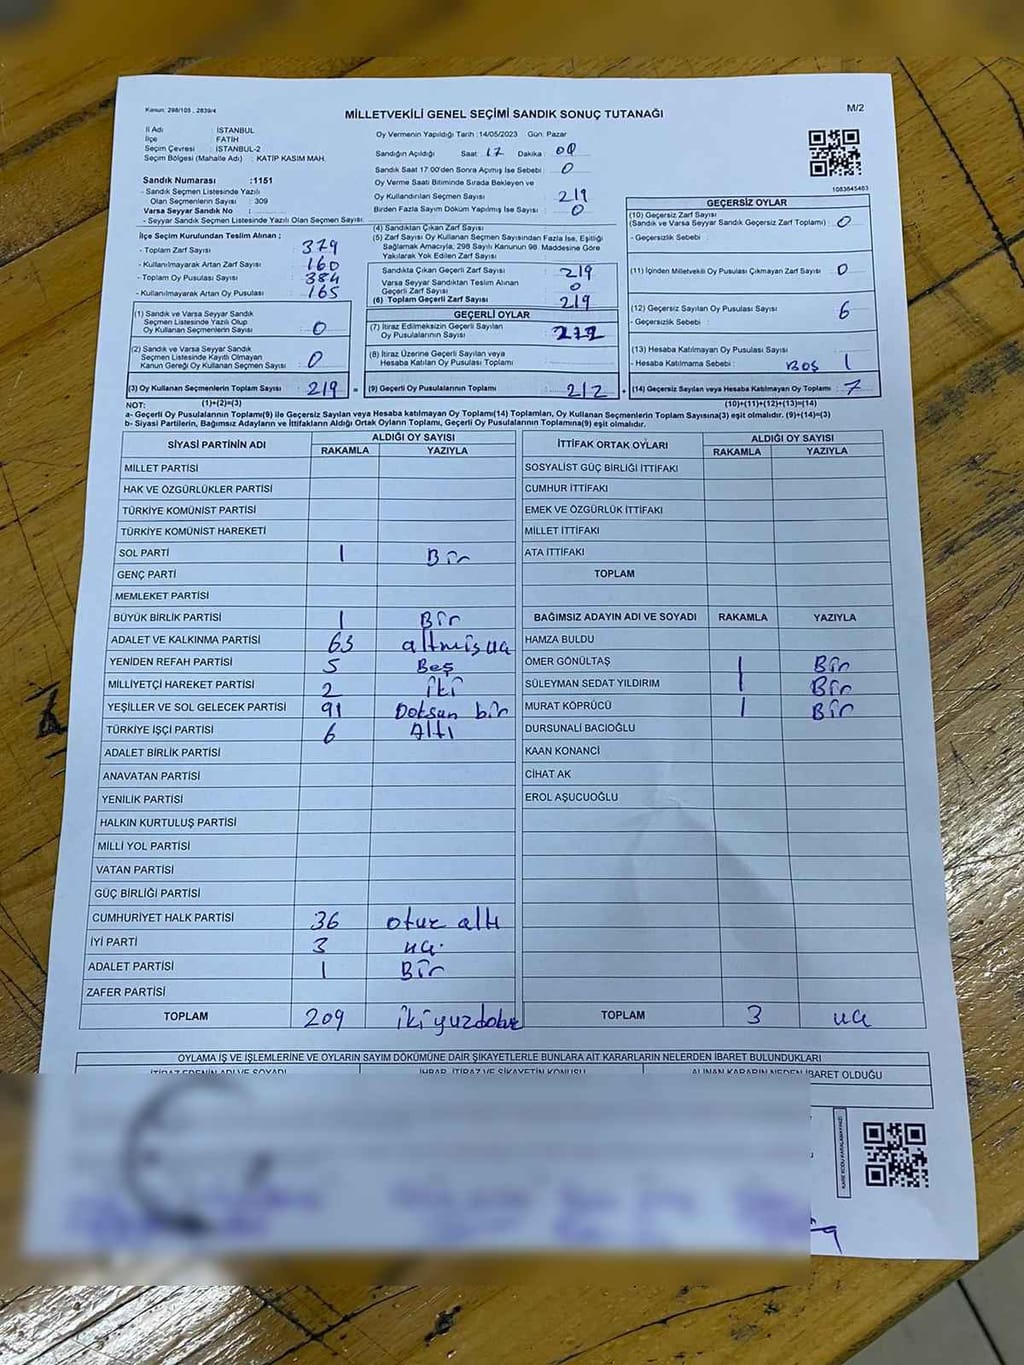 Kanun: 298/105 , 2839/4
MİLLETVEKİLİ GENEL SEÇİMİ SANDIK SONUÇ TUTANAĞI
M/2
İl Adı : İSTANBUL
İlçe : FATİH
Seçim Çevresi : İSTANBUL-2
Seçim Bölgesi (Mahalle Adı) : KATİP KASIM MAH.
Sandık Numarası :1151
- Sandık Seçmen Listesinde Yazılı
Olan Seçmenlerin Sayısı : 309
Varsa Seyyar Sandık No :
- Seyyar Sandık Seçmen Listesinde Yazılı Olan Seçmen Sayısı:
Oy Vermenin Yapıldığı Tarih :14/05/2023 Gün: Pazar
Sandığın Açıldığı Saat : 17 Dakika : 00
Sandık Saat 17:00'den Sonra Açımış İse Sebebi : 0
Oy Verme Saati Bitiminde Sırada Bekleyen ve
Oy Kullandırılan Seçmen Sayısı : 219
Birden Fazla Sayım Döküm Yapılmış İse Sayısı : 0
1083645463
İlçe Seçim Kurulundan Teslim Alınan ;
- Toplam Zarf Sayısı : 379
- Kullanılmayarak Artan Zarf Sayısı : 160
- Toplam Oy Pusulası Sayısı : 384
- Kullanılmayarak Artan Oy Pusulası : 165
(1) Sandık ve Varsa Seyyar Sandık
Seçmen Listesinde Yazılı Olup
Oy Kullanan Seçmenlerin Sayısı : 0
(2) Sandık ve Varsa Seyyar Sandık
Seçmen Listesinde Kayıtlı Olmayan
Kanun Gereği Oy Kullanan Seçmen Sayısı : 0
(3) Oy Kullanan Seçmenlerin Toplam Sayısı : 219
(1)+(2)=(3)
(4) Sandıktan Çıkan Zarf Sayısı :
(5) Zarf Sayısı Oy Kullanan Seçmen Sayısından Fazla İse, Eşitliği
Sağlamak Amacıyla, 298 Sayılı Kanunun 98. Maddesine Göre
Yakılarak Yok Edilen Zarf Sayısı :
Sandıkta Çıkan Geçerli Zarf Sayısı : 219
Varsa Seyyar Sandıktan Teslim Alınan
Geçerli Zarf Sayısı : 0
(6) Toplam Geçerli Zarf Sayısı : 219
GEÇERLİ OYLAR
(7) İtiraz Edilmeksizin Geçerli Sayılan
Oy Pusulalarının Sayısı : 212
(8) İtiraz Üzerine Geçerli Sayılan veya
Hesaba Katılan Oy Pusulası Toplamı :
= (9) Geçerli Oy Pusulalarının Toplamı : 212
GEÇERSİZ OYLAR
(10) Geçersiz Zarf Sayısı
(Sandık ve Varsa Seyyar Sandık Geçersiz Zarf Toplamı) : 0
- Geçersizlik Sebebi :
(11) İçinden Milletvekili Oy Pusulası Çıkmayan Zarf Sayısı : 0
(12) Geçersiz Sayılan Oy Pusulası Sayısı : 6
- Geçersizlik Sebebi :
(13) Hesaba Katılmayan Oy Pusulası Sayısı :
- Hesaba Katılmama Sebebi : BOŞ 1
+ (14) Geçersiz Sayılan veya Hesaba Katılmayan Oy Toplamı : 7
(10)+(11)+(12)+(13)=(14)
NOT:
a- Geçerli Oy Pusulalarının Toplamı(9) ile Geçersiz Sayılan veya Hesaba katılmayan Oy Toplamı(14) Toplamları, Oy Kullanan Seçmenlerin Toplam Sayısına(3) eşit olmalıdır. (9)+(14)=(3)
b- Siyasi Partilerin, Bağımsız Adayların ve İttifakların Aldığı Ortak Oyların Toplamı, Geçerli Oy Pusulalarının Toplamına(9) eşit olmalıdır.
SİYASİ PARTİNİN ADI ALDIĞI OY SAYISI
RAKAMLA YAZIYLA
MİLLET PARTİSİ
HAK VE ÖZGÜRLÜKLER PARTİSİ
TÜRKİYE KOMÜNİST PARTİSİ
TÜRKİYE KOMÜNİST HAREKETİ
SOL PARTİ 1 Bir
GENÇ PARTİ
MEMLEKET PARTİSİ
BÜYÜK BİRLİK PARTİSİ 1 Bir
ADALET VE KALKINMA PARTİSİ 63 altmış üç
YENİDEN REFAH PARTİSİ 5 Beş
MİLLİYETÇİ HAREKET PARTİSİ 2 iki
YEŞİLLER VE SOL GELECEK PARTİSİ 91 Doksan bir
TÜRKİYE İŞÇİ PARTİSİ 6 Altı
ADALET BİRLİK PARTİSİ
ANAVATAN PARTİSİ
YENİLİK PARTİSİ
HALKIN KURTULUŞ PARTİSİ
MİLLİ YOL PARTİSİ
VATAN PARTİSİ
GÜÇ BİRLİĞİ PARTİSİ
CUMHURİYET HALK PARTİSİ 36 otuz altı
İYİ PARTİ 3 üç
ADALET PARTİSİ 1 Bir
ZAFER PARTİSİ
TOPLAM 209 ikiyüzdokuz
İTTİFAK ORTAK OYLARI ALDIĞI OY SAYISI
RAKAMLA YAZIYLA
SOSYALİST GÜÇ BİRLİĞİ İTTİFAKI
CUMHUR İTTİFAKI
EMEK VE ÖZGÜRLÜK İTTİFAKI
MİLLET İTTİFAKI
ATA İTTİFAKI
TOPLAM
BAĞIMSIZ ADAYIN ADI VE SOYADI RAKAMLA YAZIYLA
HAMZA BULDU
ÖMER GÖNÜLTAŞ 1 Bir
SÜLEYMAN SEDAT YILDIRIM 1 Bir
MURAT KÖPRÜCÜ 1 Bir
DURSUNALİ BACIOĞLU
KAAN KONANCİ
CİHAT AK
EROL AŞUCUOĞLU
TOPLAM 3 üç
OYLAMA İŞ VE İŞLEMLERİNE VE OYLARIN SAYIM DÖKÜMÜNE DAİR ŞİKAYETLERLE BUNLARA AİT KARARLARIN NELERDEN İBARET BULUNDUKLARI
İTİRAZ EDENİN ADI VE SOYADI İHBAR, İTİRAZ VE ŞİKAYETİN KONUSU ALINAN KARARIN NEDEN İBARET OLDUĞU